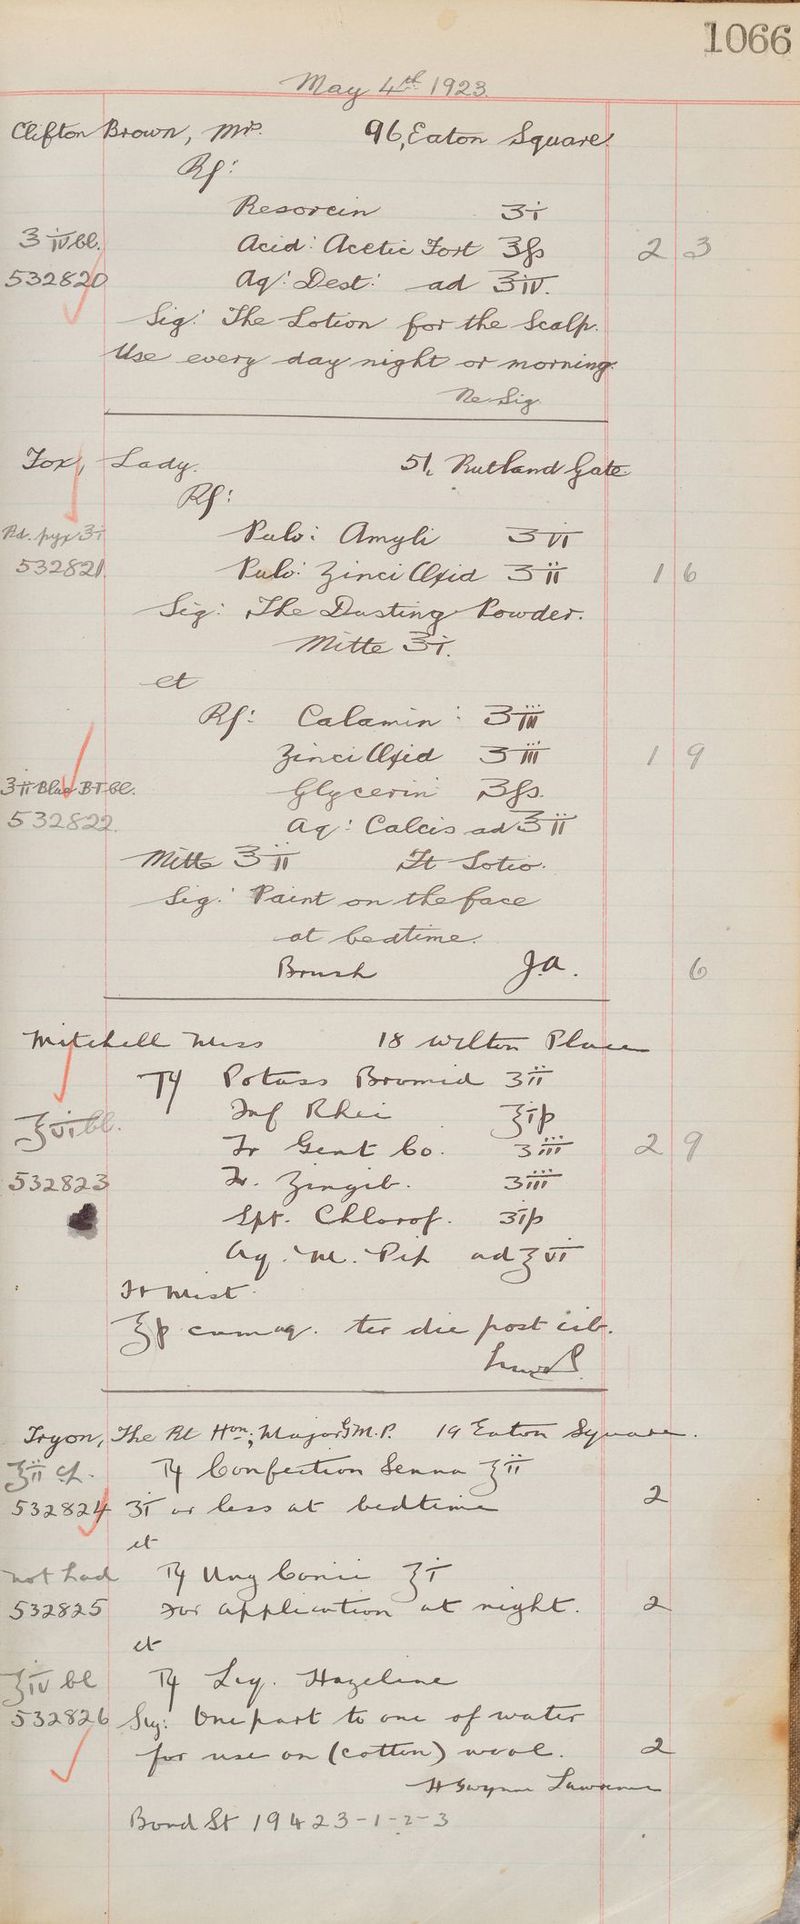 1066
May 4th 1923.
Clifton Brown, Mrs. 96, Eaton Square.
Rp:
Resorcin ʒi
ʒiv bl. Acid: Acetic Fort ʒfs 2 3
532820 Aq: Dest: ad ʒiv.
Sig: The Lotion for the Scalp.
Use every day night or morning.
Ne Sig.
Fox, Lady. 51, Rutland Gate.
Rp:
Pd. pyx ʒi Pulv: Amyli ʒvi
532821 Pulv: Zinci Oxid ʒii 1 6
Sig: The Dusting Powder.
Mitte ʒi.
et
Rp: Calamin: ʒiii
Zinci Oxid ʒiii 1 9
ʒii Blue B.T. bl. Glycerin ʒfs.
532822. Aq: Calcis ad ʒii
Mitte ʒii Ft Lotio.
Sig: Paint on the face
at bedtime.
Brush J.A. 6
Mitchell Miss 18 Wilton Place
Ry Potass Bromid ʒii
℥vi bl. Inf Rhei ℥ifs
Tr Gent Co. ʒiii 2 9
532823 Tr. Zingib. ʒiii
Spt. Chlorof. ʒifs
Aq. M. Pip ad ℥vi
Ft Mist.
℥fs cum aq. ter die post cib.
Tryon, The Rt Hon; Major G M.P. 19 Eaton Square.
℥ii Ry Confection Senna ℥ii
532824 ʒi or less at bedtime 2
et
not had Ry Ung Conii ℥i
532825 For application at night. 2
et
℥iv bl Ry Liq. Hazeline
532826 Sig: One part to one of water
for use on (cotton) wool. 2
H Gwynne Lawrence
Bond St 19423-1-2-3